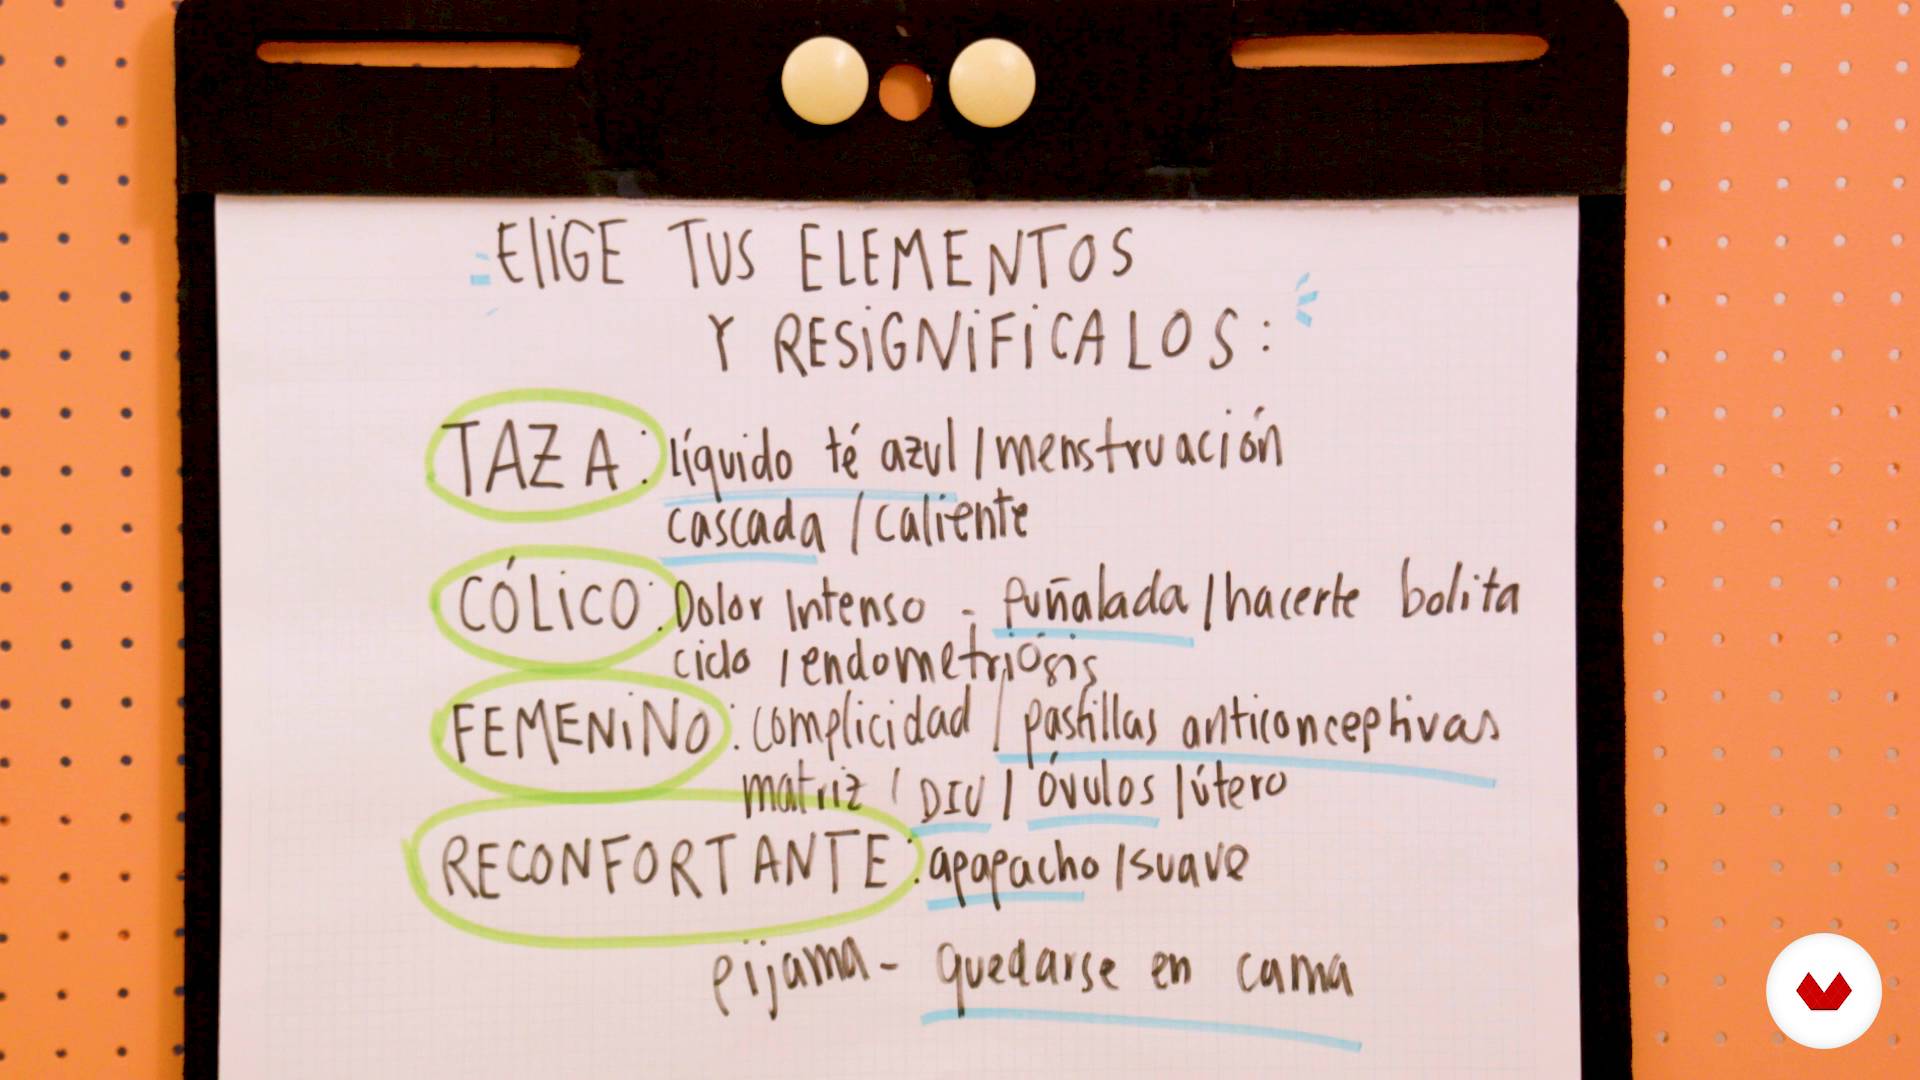 ELIGE TUS ELEMENTOS
Y RESIGNIFICALOS:
TAZA: líquido té azul / menstruación
cascada / caliente
CÓLICO: Dolor Intenso - Puñalada / hacerte bolita
ciclo / endometriosis
FEMENINO: complicidad / pastillas anticonceptivas
matriz / DIU / óvulos / útero
RECONFORTANTE: apapacho / suave
pijama - quedarse en cama